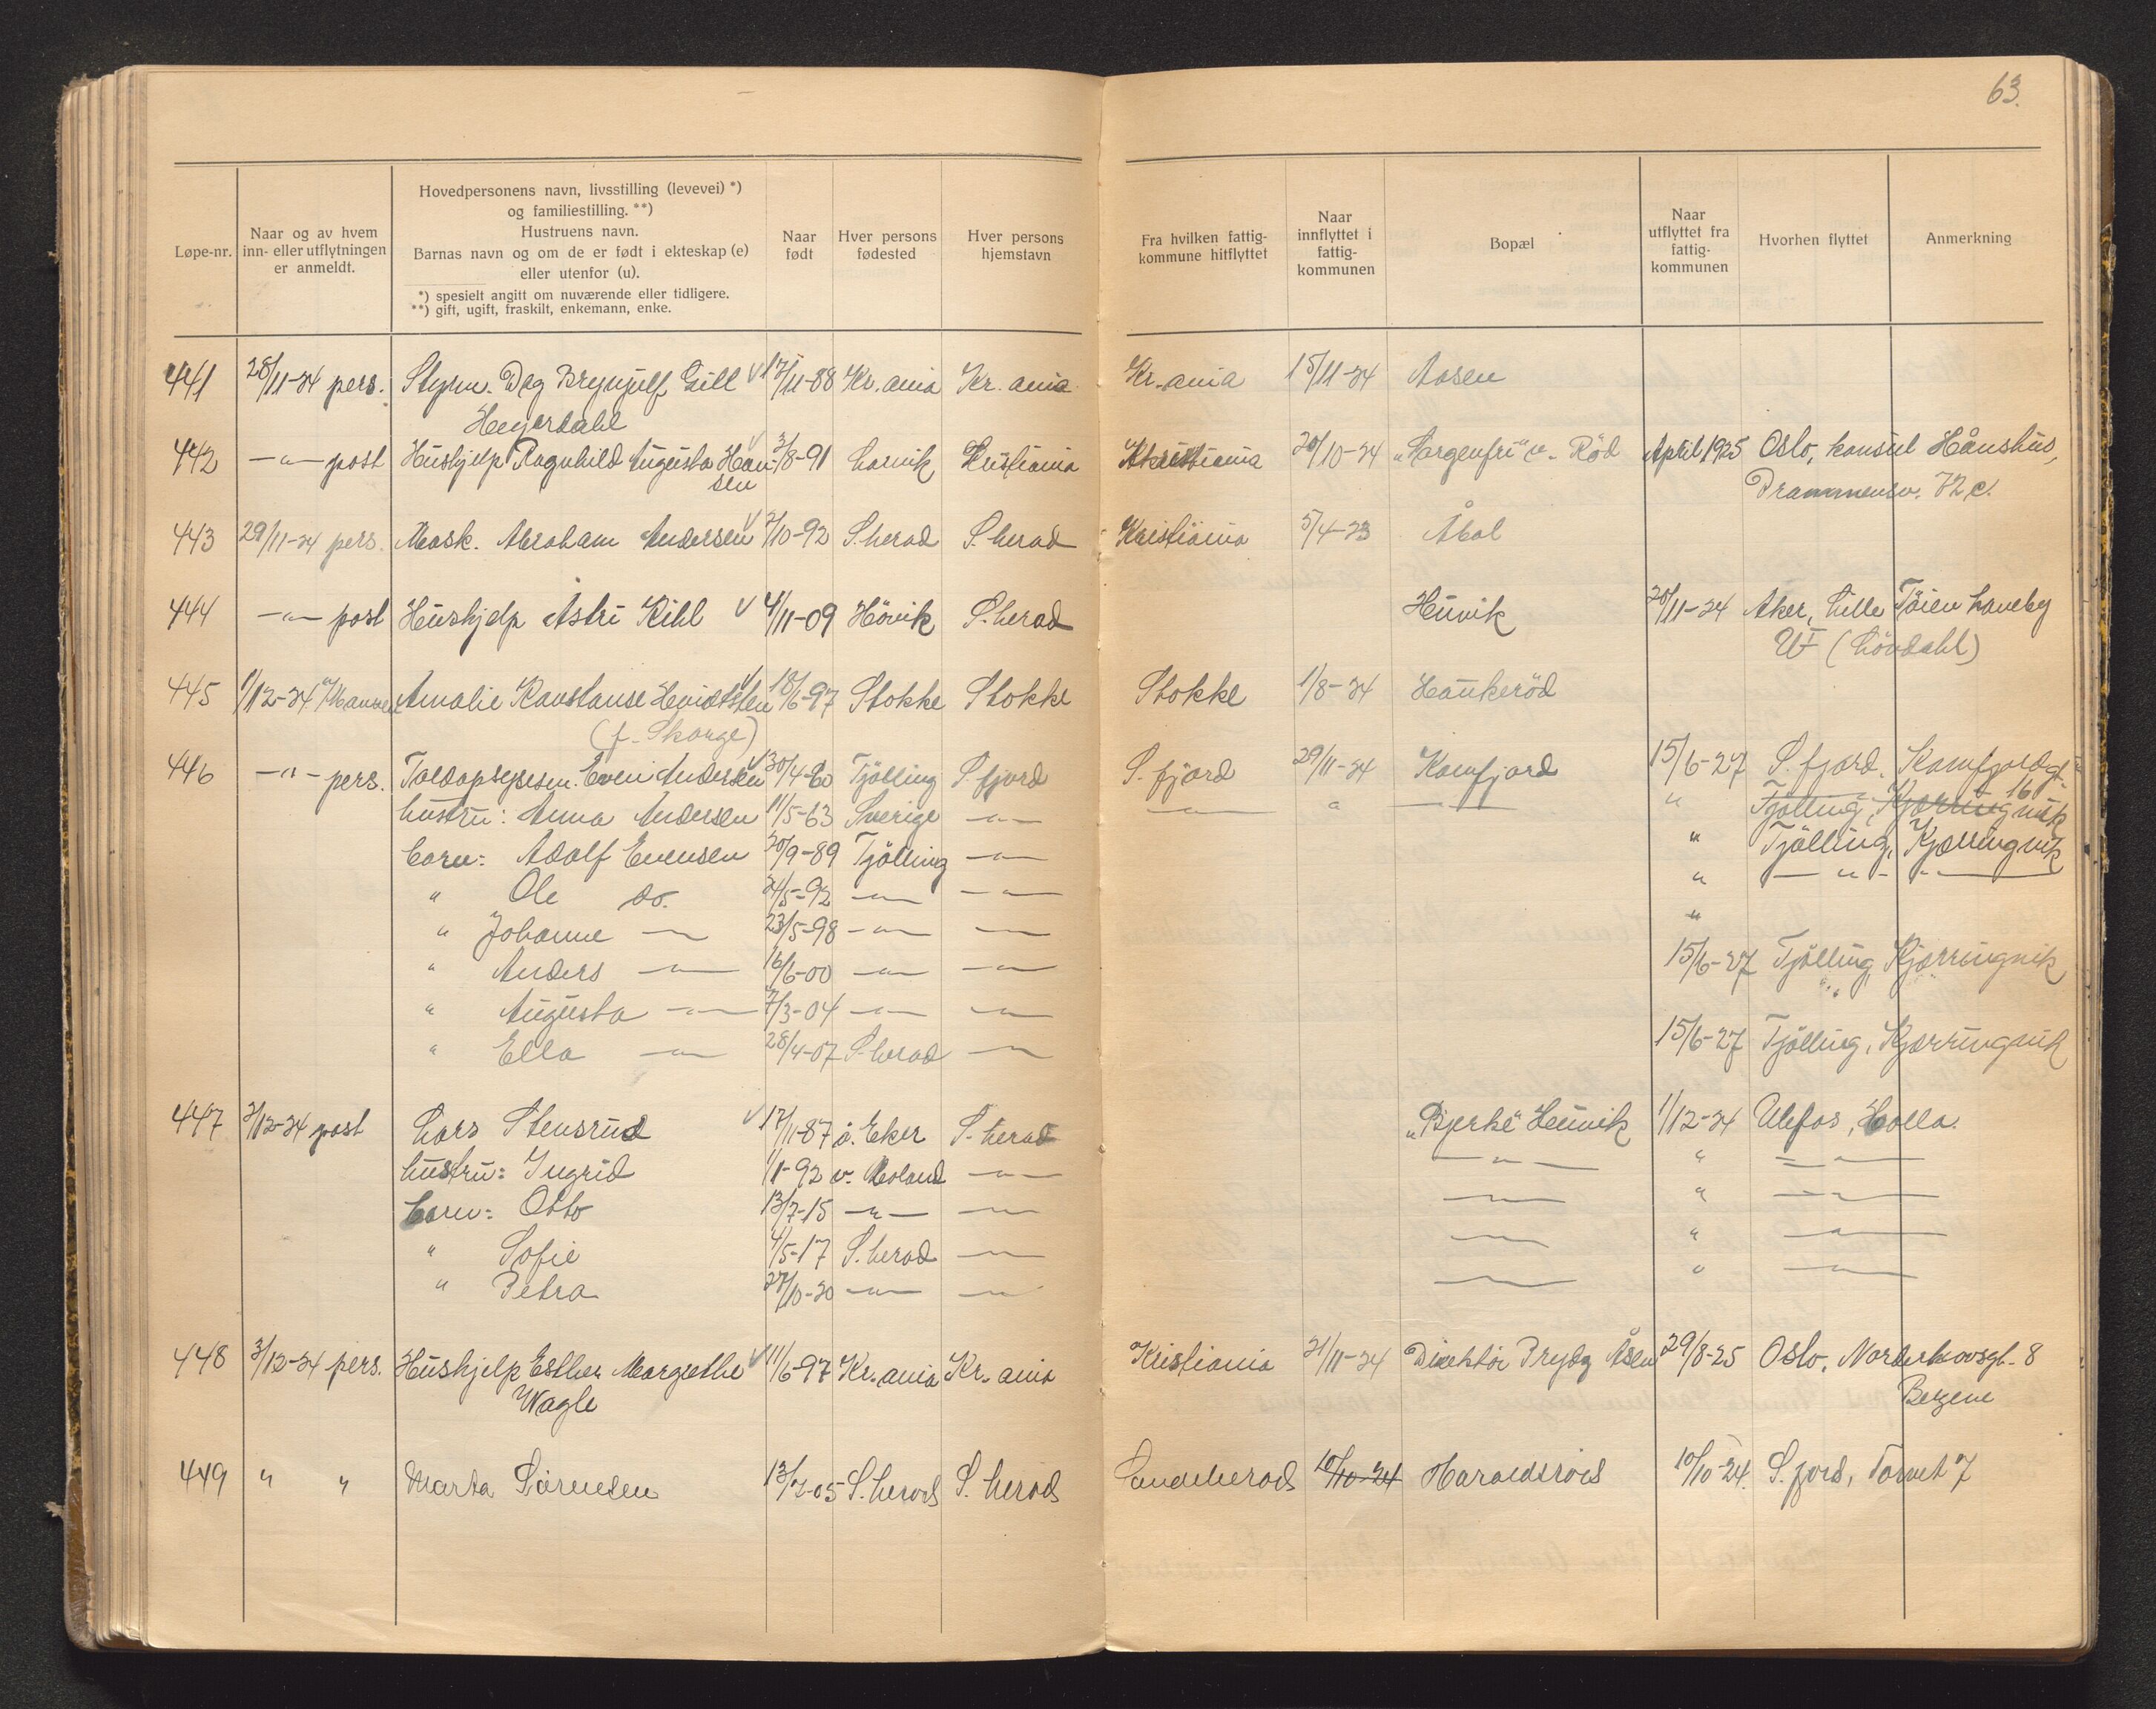 63.
Løpe-nr.
Naar og av hvem inn- eller utflytningen er anmeldt.
Hovedpersonens navn, livsstilling (levevei) *) og familiestilling. **) Hustruens navn. Barnas navn og om de er født i ekteskap (e) eller utenfor (u).
*) spesielt angitt om nuværende eller tidligere.
**) gift, ugift, fraskilt, enkemann, enke.
Naar født
Hver persons fødested
Hver persons hjemstavn
Fra hvilken fattig-kommune hitflyttet
Naar innflyttet i fattig-kommunen
Bopæl
Naar utflyttet fra fattig-kommunen
Hvorhen flyttet
Anmerkning
441 28/11-24 pers. Styrm. Dag Brynjulf Gill 17/11-88 Kr.ania Kr.ania Kr.ania 15/11-24 Aasen
Heyerdahl
442 -"- post Hushjelp Ragnhild Augusta Han- 3/8-91 Larvik Kristiania Kristiania 20/10-24 "Sorgenfri" v. Röd April 1925 Oslo, konsul Hånshus,
sen Drammensv. 72 c.
443 29/11-24 pers. Mask. Abraham Andersen 2/10-92 S.herad S.herad Kristiania 5/4-23 Åbol
444 -"- post Hushjelp Astri Kihl 4/11-09 Hövik S.herad Heuvik 20/11-24 Aker, Lille Töien haveby
UF (Lövdahl)
445 1/12-24 Amalie Konstanse 18/6-97 Stokke Stokke Stokke 1/8-24 Haukeröd
(f. Skorge)
446 -"- pers. Toldopsynsm. Even Andersen 30/4-60 Tjölling S.fjord S.fjord 29/11-24 Kamfjord 15/6-27 S.fjord, Kamfjordgt.
16
hustru: Anna Andersen 11/5-63 Sverige -"- -"- " -"- " Tjölling, Kjærringvik
barn: Adolf Evensen 20/9-89 Tjölling -"- " Tjölling, Kjærringvik
" Ole do. 24/5-92 -"- -"- " -"-
" Johanne -"- 23/5-98 -"- -"- "
" Anders -"- 16/6-00 -"- -"- 15/6-27 Tjölling, Kjærringvik
" Augusta -"- 7/3-04 -"- -"-
" Ella -"- 28/4-07 S.herad -"- 15/6-27 Tjölling, Kjærringvik
447 2/12-24 post Lars Stensrud 17/11-87 ö. Eker S.herad "Bjerke" Heuvik 1/12-24 Ulefos, Holla.
hustru: Ingrid 1/1-92 v. Moland -"- -"- " -"-
barn: Otto 13/7-15 -"- -"- -"- " -"-
" Sofie 4/5-17 S.herad -"- -"- " -"-
" Petra 27/10-20 -"- -"- -"- " -"-
448 3/12-24 pers. Hushjelp Esther Margrethe 11/6-97 Kr.ania Kr.ania Kristiania 21/11-24 Direktör Prydz Åsen 29/8-25 Oslo, Norderhovsgt. 8
Wagle
449 " " Marta Sörensen 13/7-05 S.herad S.herad Sandeherad 10/10-24 Haraldsröd 10/10-24. S.fjord, Torvet 7